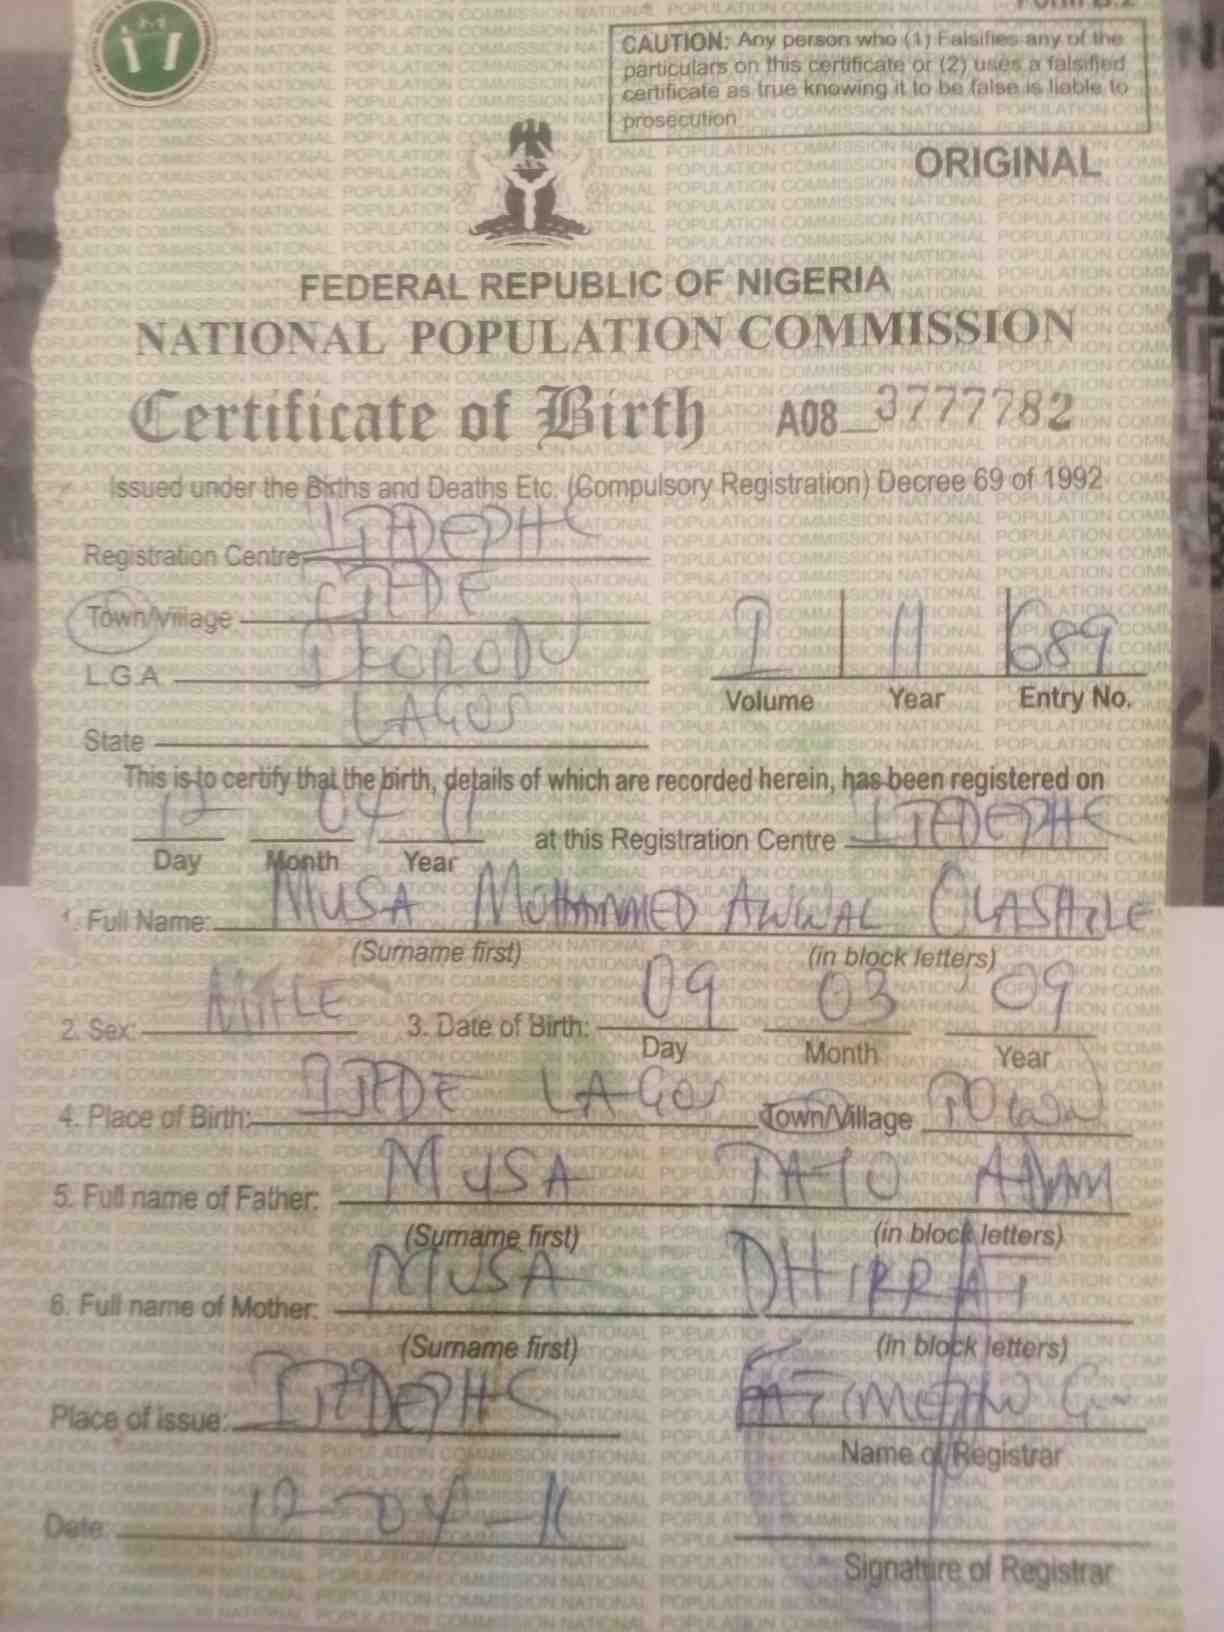 Form B.2
CAUTION: Any person who (1) Falsifies any of the
particulars on this certificate or (2) uses a falsified
certificate as true knowing it to be false is liable to
prosecution
ORIGINAL
FEDERAL REPUBLIC OF NIGERIA
NATIONAL POPULATION COMMISSION
Certificate of Birth A08 3777782
Issued under the Births and Deaths Etc. (Compulsory Registration) Decree 69 of 1992
Registration Centre IJEDEPHC
Town/Village IJEDE
L.G.A IKORODU
I 11 689
Volume Year Entry No.
State LAGOS
This is to certify that the birth, details of which are recorded herein, has been registered on
12 04 11 at this Registration Centre IJEDEPHC
Day Month Year
1. Full Name: MUSA MOHAMMED AWWAL
(Surname first) (in block letters)
2. Sex: MALE 3. Date of Birth: 09 03 09
Day Month Year
4. Place of Birth: IJEDE LAGOS Town/Village Town
5. Full name of Father: MUSA TAIO ADAM
(Surname first) (in block letters)
6. Full name of Mother: MUSA DHIRRAT
(Surname first) (in block letters)
Place of issue: IJEDEPHC
Name of Registrar
Date: 12-04-11
Signature of Registrar